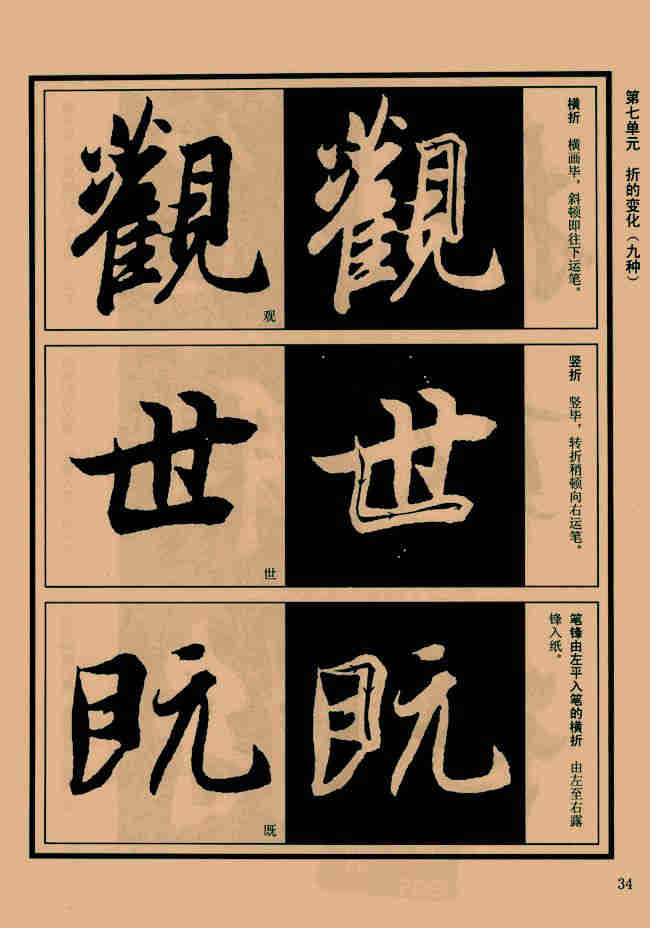 第七单元　折的变化（九种）
横折　横画毕，斜顿即往下运笔。
觀
觀
观
竖折　竖毕，转折稍顿向右运笔。
世
世
世
笔锋由左平入笔的横折　由左至右露
锋入纸。
既
既
既
34